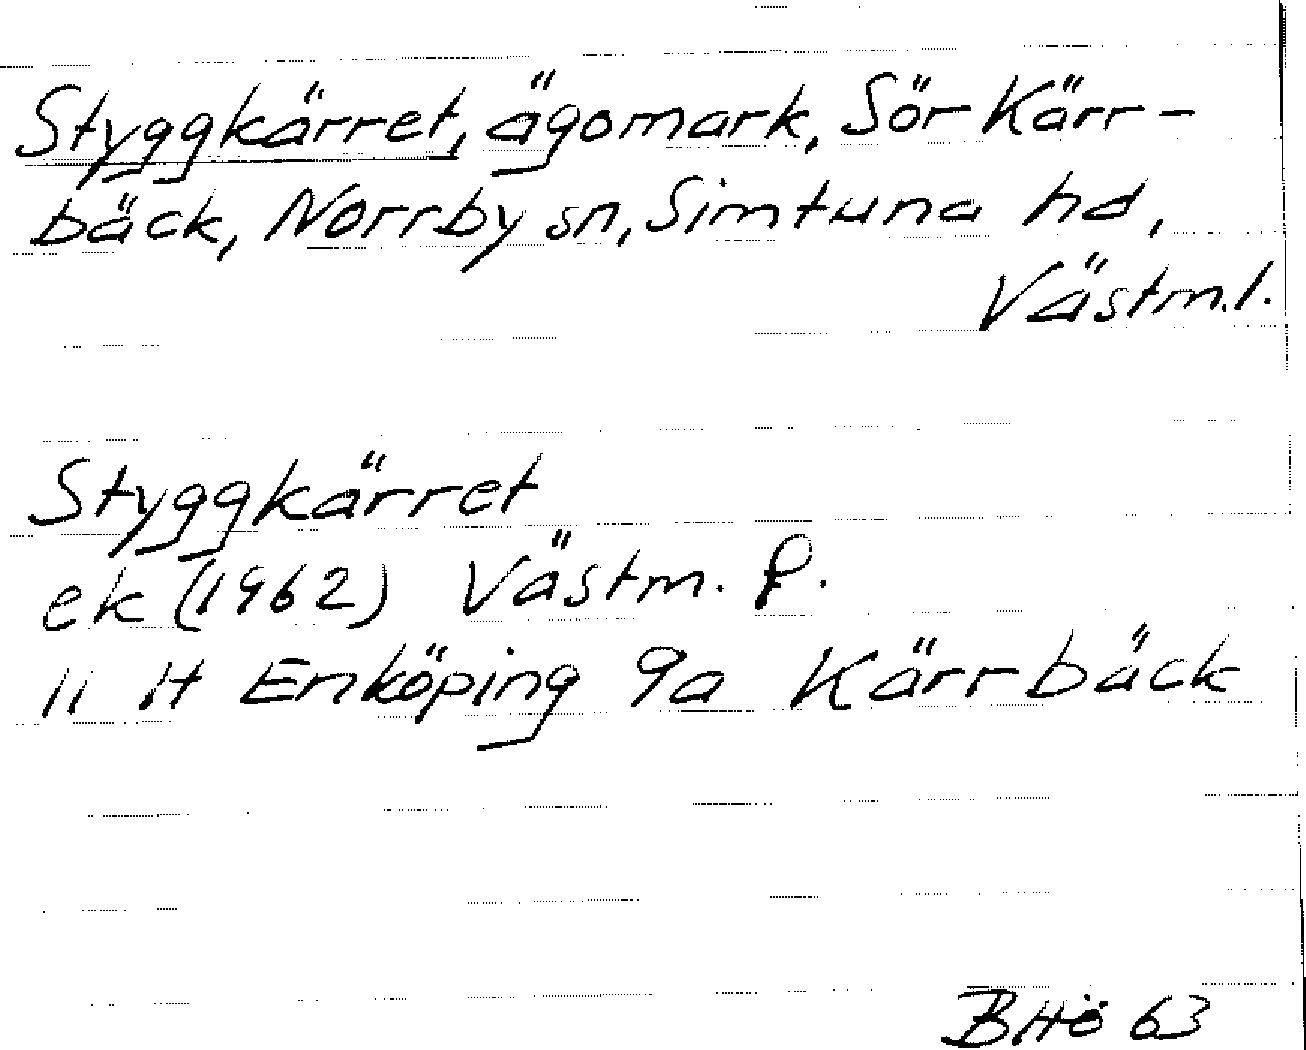 Styggkärret, ägomark, Sör Kärr-
bäck, Norrby sn, Simtuna hd,
Västm.l.
Styggkärret
ek (1962) Västm. f.
11 H Enköping 9a Kärrbäck
BHö 63